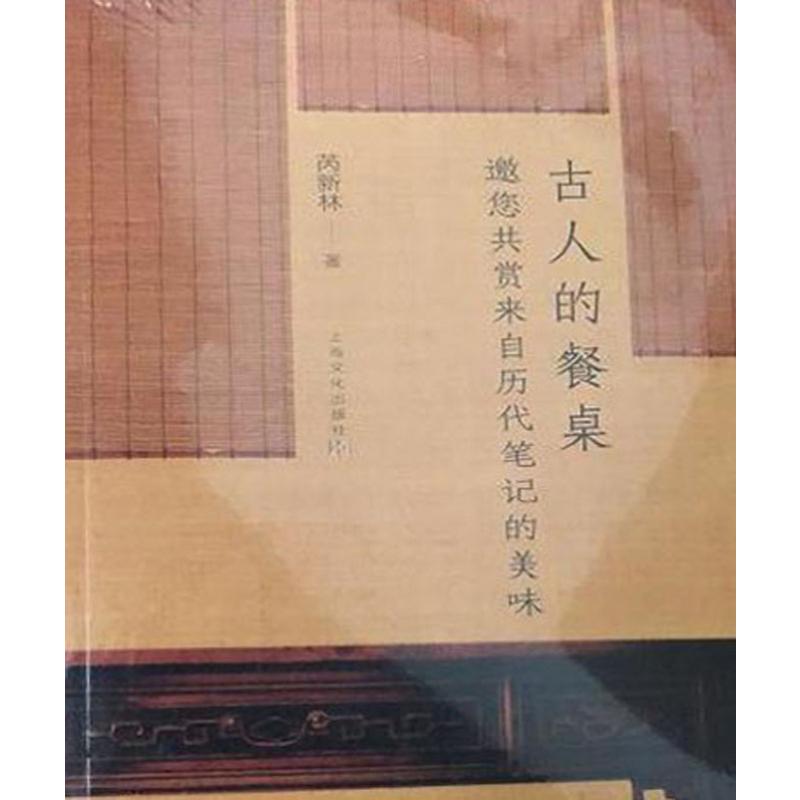 古人的餐桌
邀您共赏来自历代笔记的美味
芮新林 著
上海文化出版社